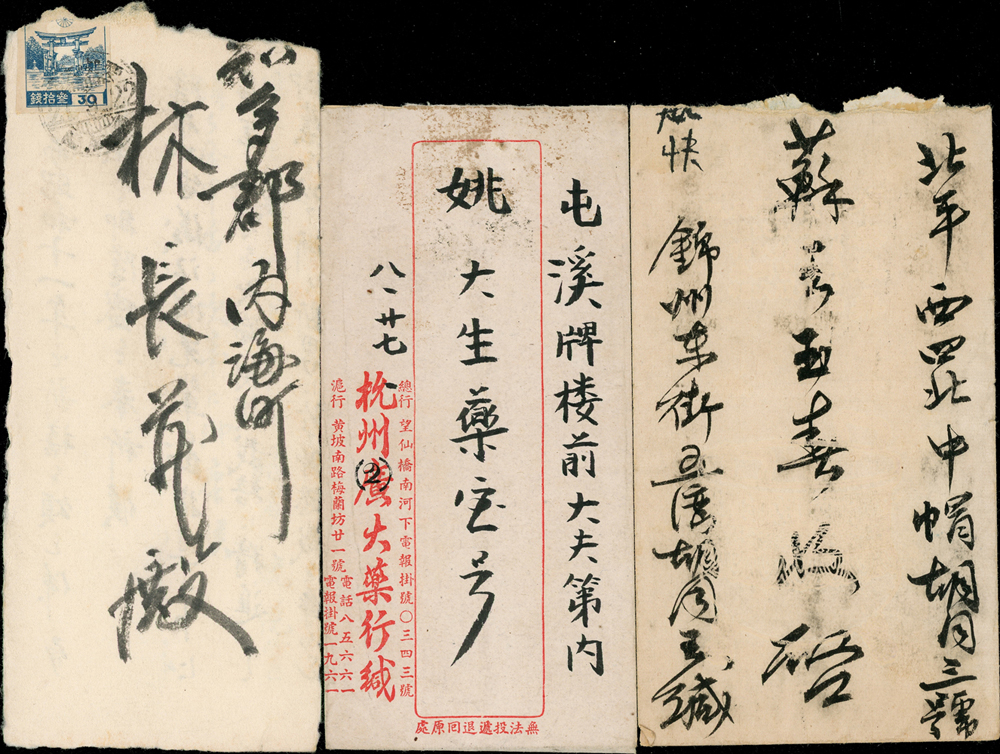 叁拾錢
30
知多郡内海町
林長茂殿
屯溪牌楼前大夫第内
姚大生藥宝号
八、廿七
總行 望仙橋南河下電報掛號〇三四三號
杭州廣大藥行緘
滬行 黄坡南路梅蘭坊廿一號
電話八五六六一
電報掛號一九六一
無法投遞退回原處
北平西四北中帽胡同三號
蘇玉春啓
錦州東街五道胡同王緘
快